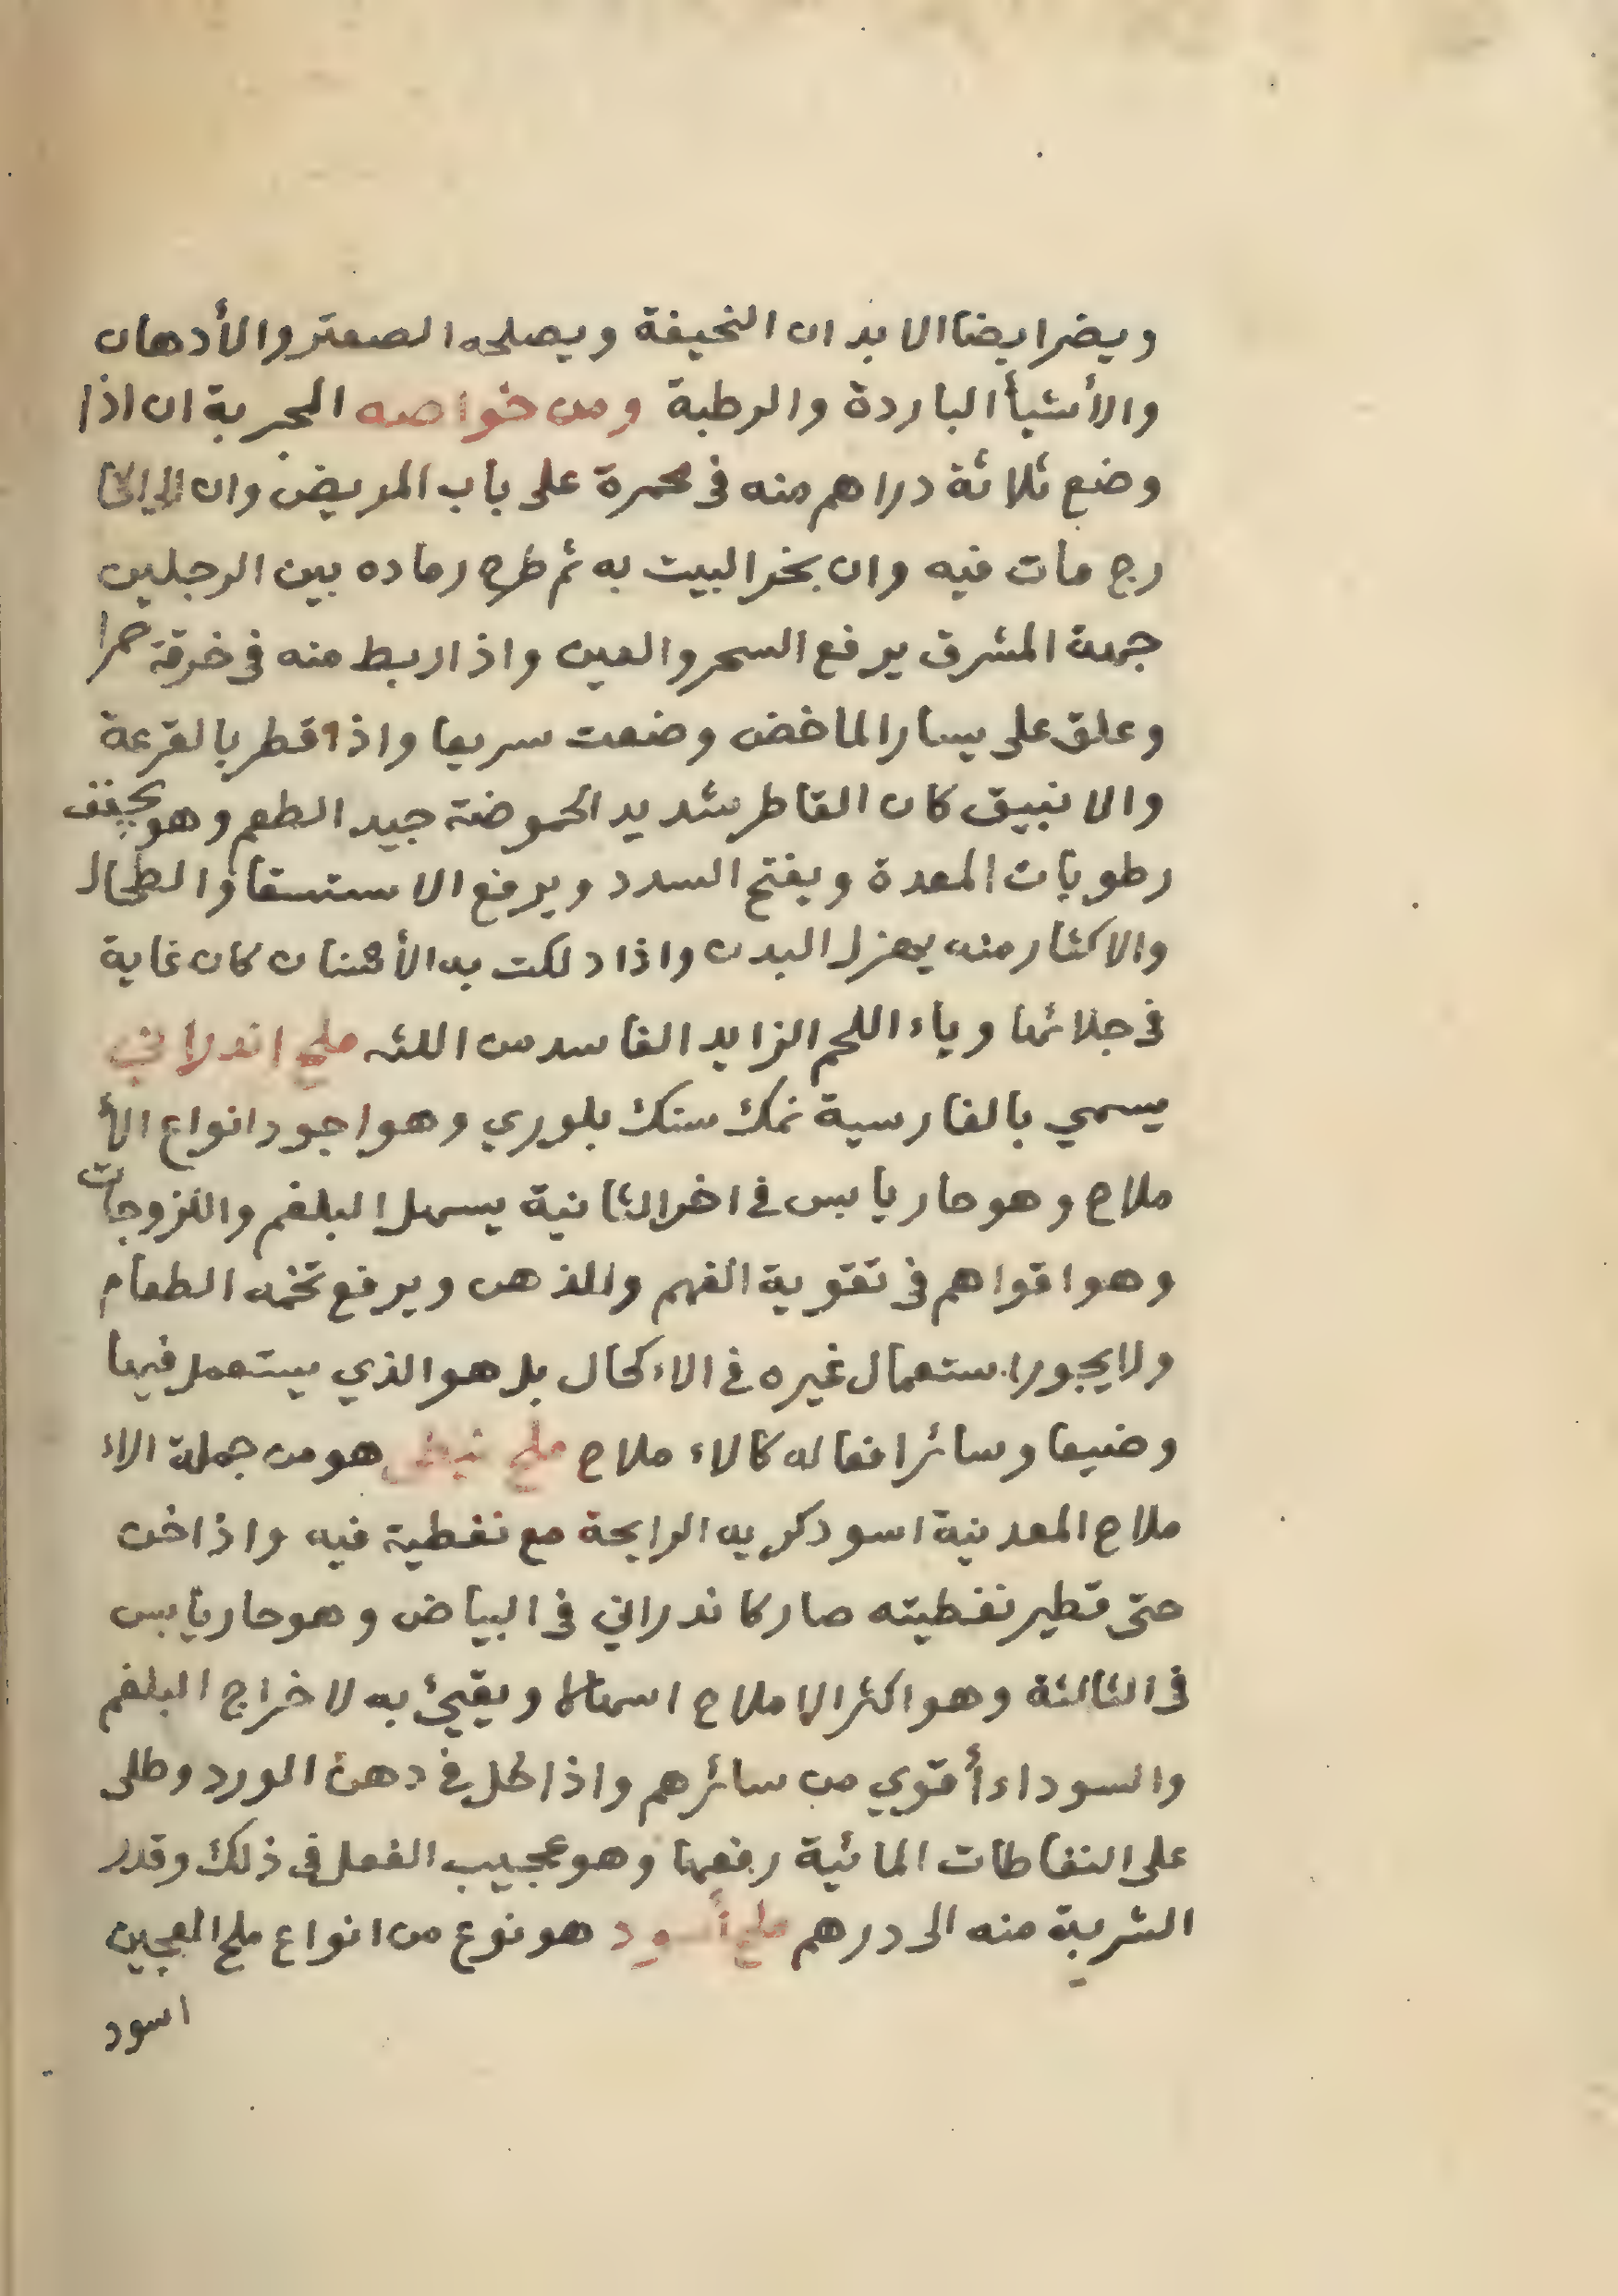 ويضر ايضا الابدان النحيفة ويصلحه الصعتر والأدهان
والأشيأ الباردة والرطبة ومن خواصه المجربة ان اذا
وضع ثلاثة دراهم منه فى مجمرة على باب المريض وان
رج مات فيه وان بخر البيت به ثم طرح رماده بين الرجلين
جهة المشرق يرفع السحر والعين واذا ربط منه فى خرقة حمرا
وعلق على يسار الماخض وضعت سريعا واذا قطر بالقرعة
والانبيق كان القاطر شديد الحموضة جيد الطعم وهو يجفف
رطوبات المعدة ويفتح السدد ويرفع الاستسقا والطحال
والاكثار منه يهزل البدن واذا دلكت به الأسنان كان غاية
فى جلائها وياء اللحم الزايد الفاسد من اللثه ملح اندراني
يسمي بالفارسية نمك سنك بلوري وهو اجود انواع الأ
ملاح وهو حار يابس فى اخر الثانية يسهل البلغم واللزوجات
وهو اقواهم فى تقوية الفهم والذهن ويرفع تخمه الطعام
ولا يجور استعمال غيره فى الاءكحال بل هو الذي يستعمل فيها
وضيعا وسائر افعاله كالاء ملاح ملح نفطى هو من جملة الاء
ملاح المعدنية اسود كريه الرايحة مع نفطية فيه واذا خن
حتى تطير نفطيته صار كاندراني فى البياض وهو حار يابس
فى الثالثة وهو اكثر الاملاح اسهالا ويقيئ به لاخراج البلغم
والسوداء أقوي من سائرهم واذا حل في دهن الورد وطلى
على النفاطات المائية رفعها وهو عجيب الفعل فى ذلك وقدر
الشربة منه الى درهم ملح أسود هو نوع من انواع ملح العجين
اسود